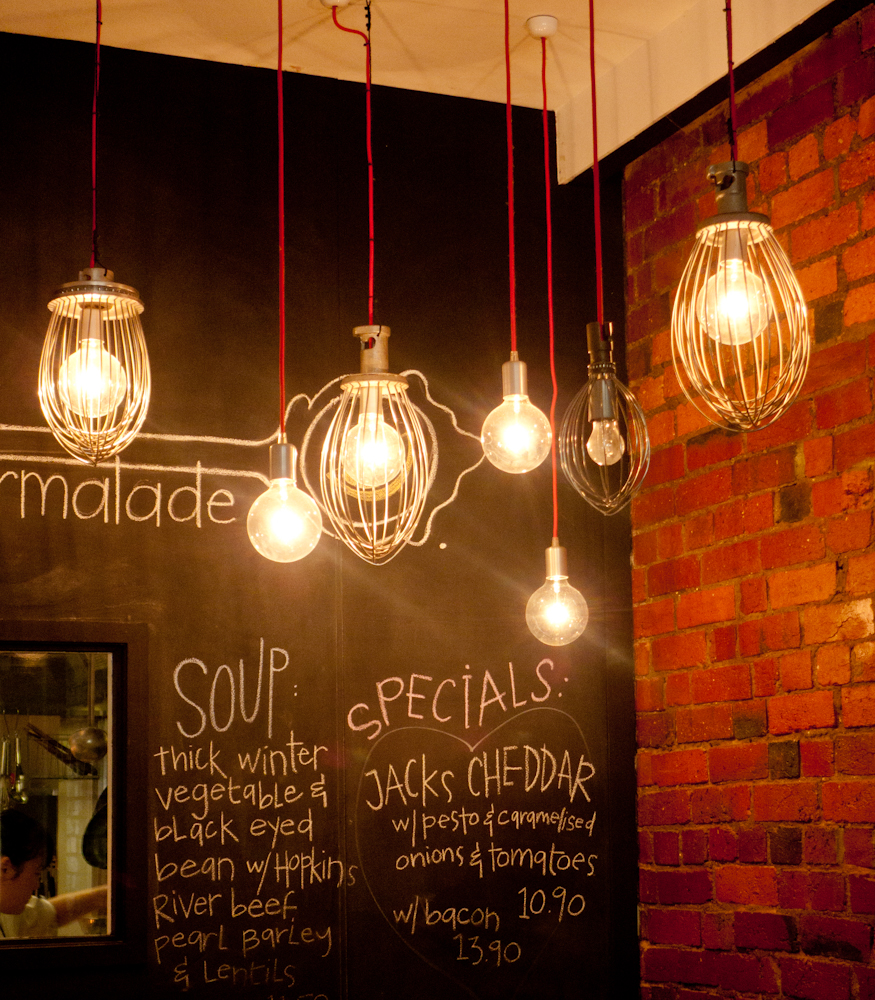 rmalade
SOUP:
thick winter
vegetable &
black eyed
bean w/Hopkins
River beef
pearl Barley
& Lentils
SPECIALS:
JACKS CHEDDAR
w/pesto & caramelised
onions & tomatoes
10.90
w/bacon
13.90